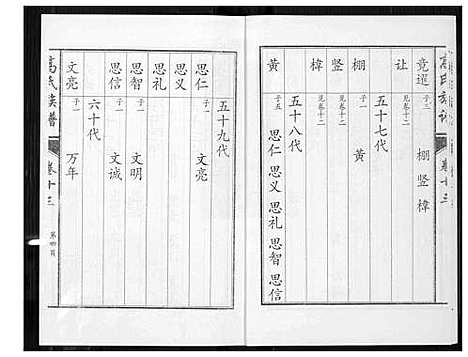 高氏族谱 卷十三
竟暹 子三 棚 竖 樟
让 见卷十二
五十七代
棚 子一 黄
竖 见卷十二
樟 见卷十二
五十八代
黄 子五 思仁 思义 思礼 思智 思信
五十九代
思仁 子一 文亮
思义
思礼
思智 子一 文明
思信 子一 文诚
六十代
文亮 子一 万年
高氏族谱 卷十三 第四页